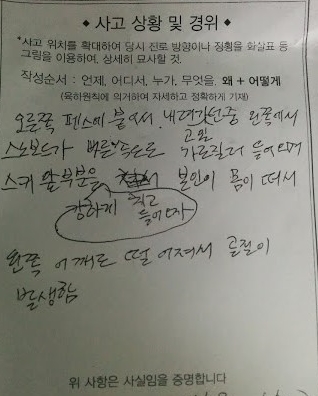 ◆ 사고 상황 및 경위 ◆
*사고 위치를 확대하여 당시 진로 방향이나 정황을 화살표 등
그림을 이용하여, 상세히 묘사할 것.
작성순서 : 언제, 어디서, 누가, 무엇을, 왜 + 어떻게
(육하원칙에 의거하여 자세하고 정확하게 기재)
오른쪽 펜스에 붙어서 내려가던중 왼쪽에서
고인
스노보드가 빠른속도로 가로질러 들어오며
스키 앞부분을 본인이 몸이 떠서
강하게 찍고
들어오자
왼쪽 어깨로 떨어져서 골절이
발생함
위 사항은 사실임을 증명합니다